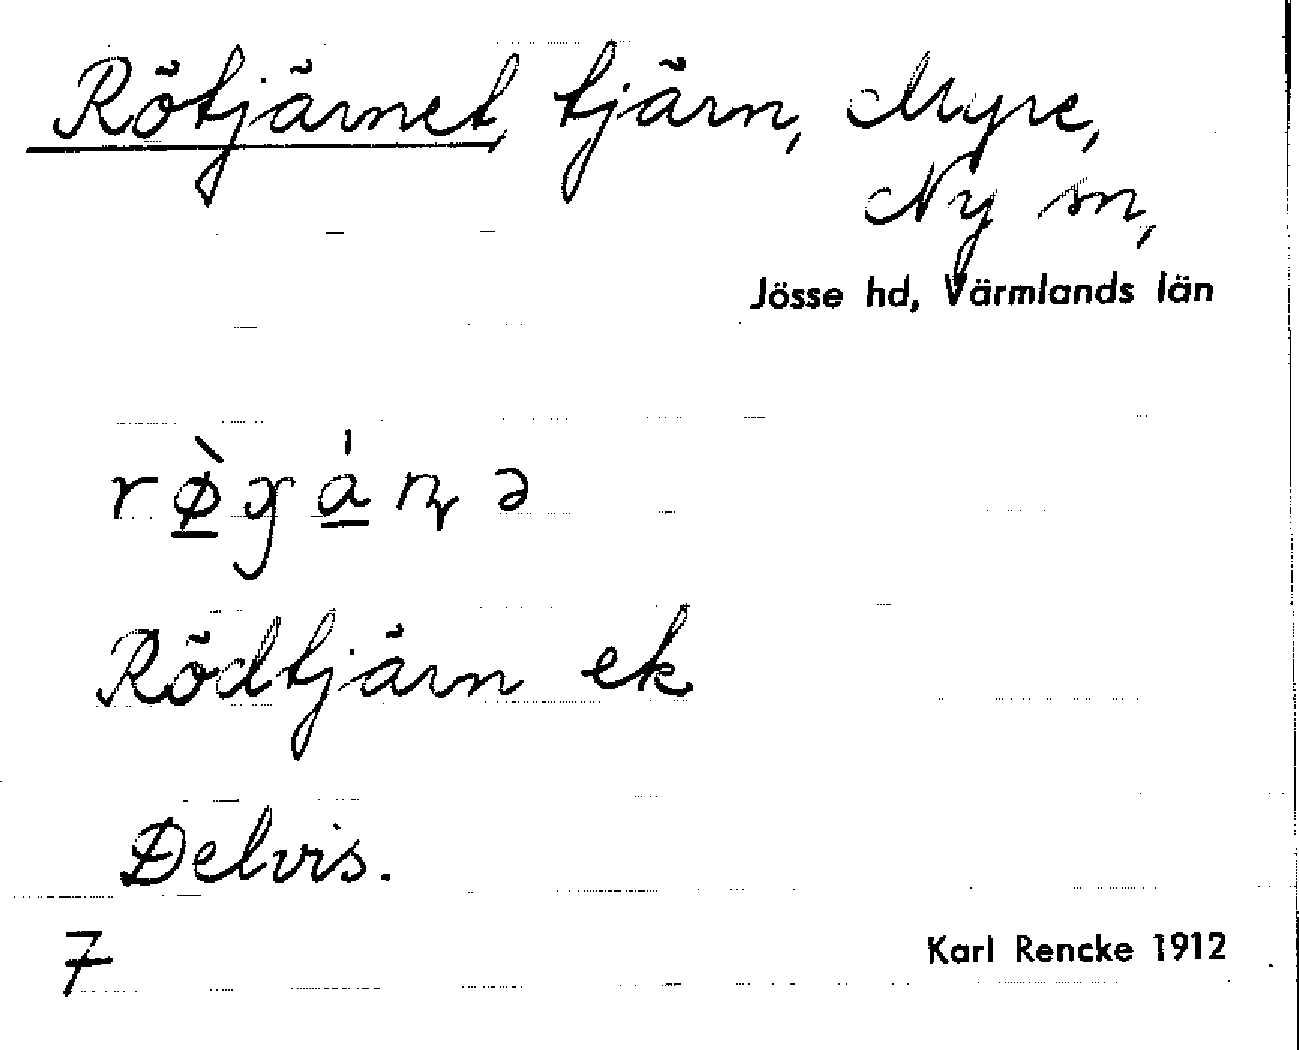 Rötjärnet, tjärn, Myre,
Ny sn,
Jösse hd, Värmlands län
rø̀gánə
Rödtjärn ek
Delvis.
7
Karl Rencke 1912